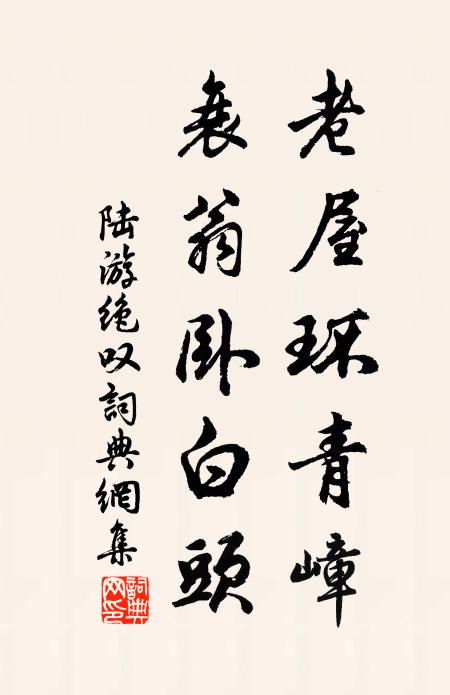 老屋环青嶂
衰翁卧白頭
陆游绝叹詞典網集
詞典网印